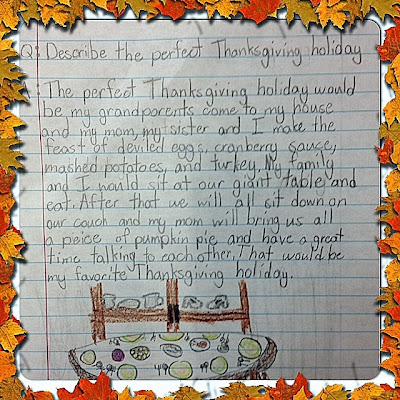 Q: Describe the perfect Thanksgiving holiday
The perfect Thanksgiving holiday would
be my grandparents come to my house
and my mom, my sister and I make the
feast of deviled eggs, cranberry sauce,
mashed potatoes, and turkey. My family
and I would sit at our giant table and
eat. After that we will all sit down on
our couch and my mom will bring us all
a peice of pumpkin pie and have a great
time talking to each other. That would be
my favorite Thanksgiving holiday.